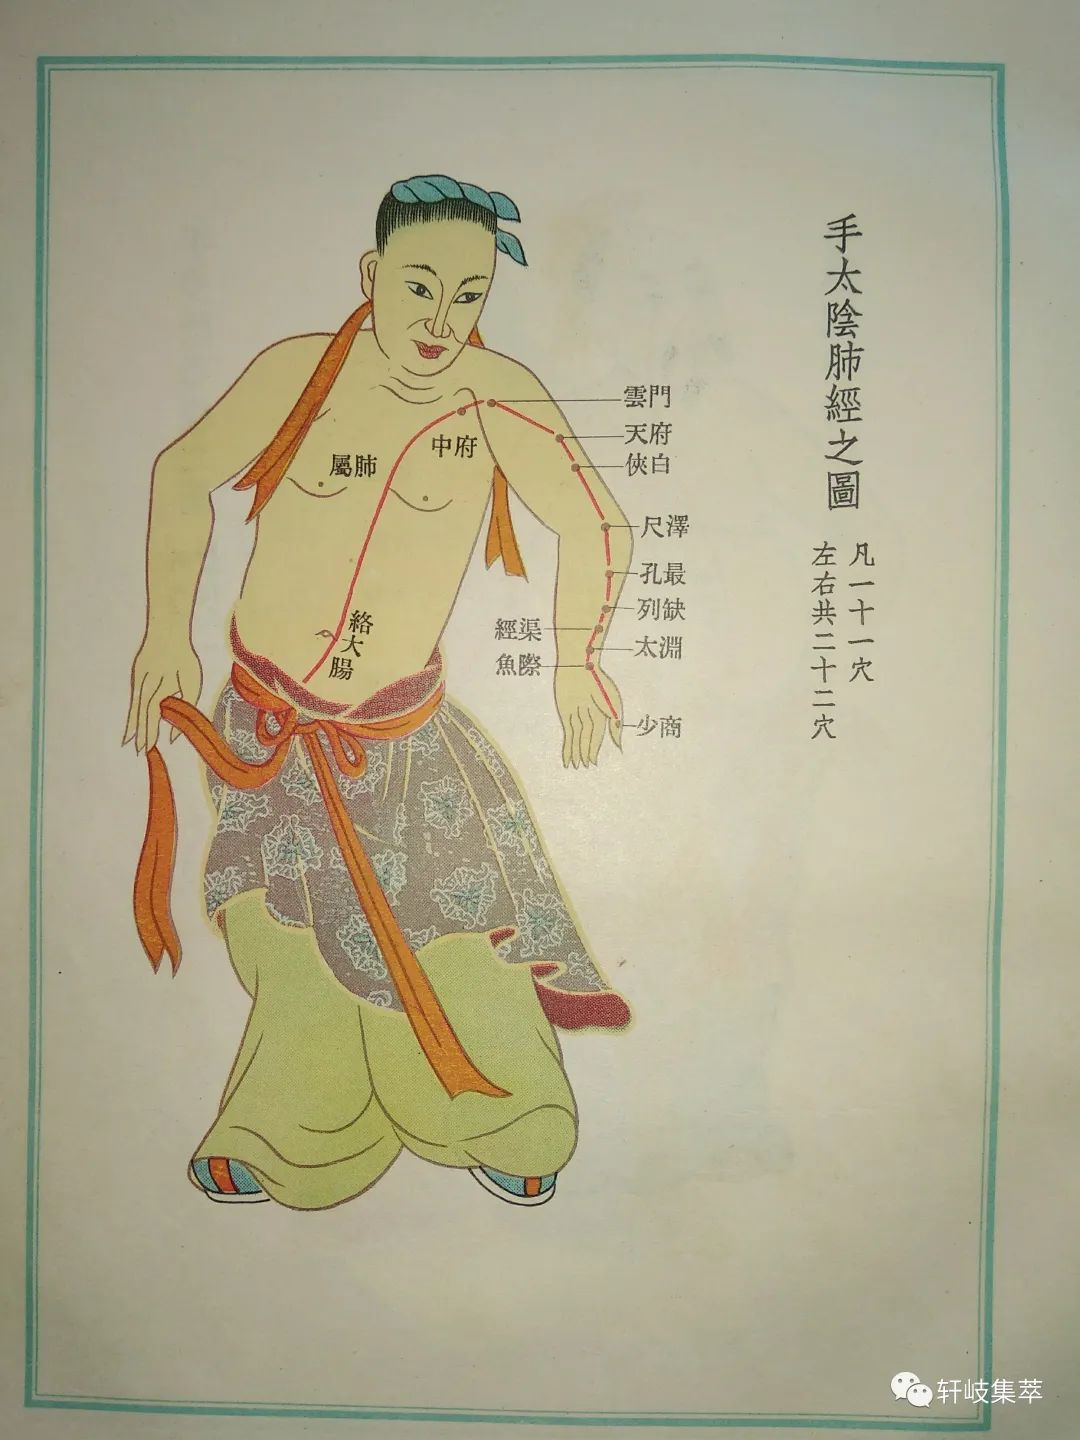 手太陰肺經之圖
凡一十一穴
左右共二十二穴
雲門
中府
天府
俠白
屬肺
尺澤
孔最
列缺
經渠
太淵
魚際
絡大腸
少商
轩岐集萃